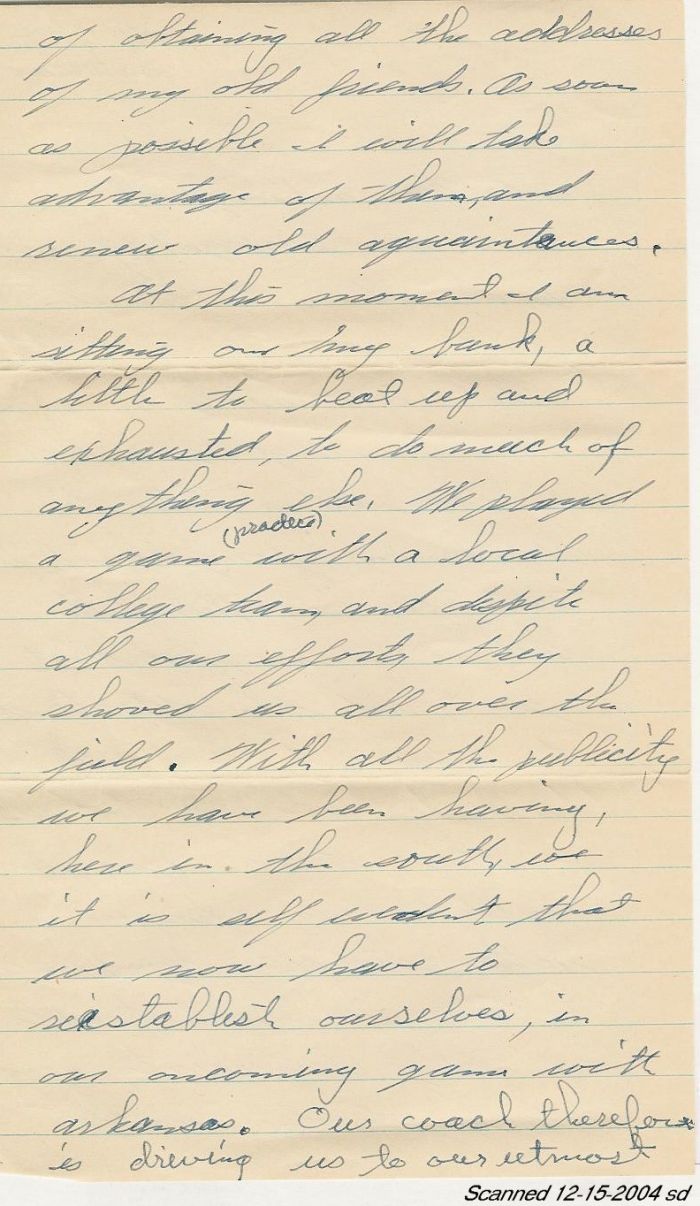 of obtaining all the addresses
of my old friends. As soon
as possible I will take
advantage of them, and
renew old aquaintances.
At this moment I am
sitting on my bunk, a
little to beat up and
exhausted, to do much of
anything else. We played
(practice)
a game with a local
college team, and despite
all our efforts, they
shoved us all over the
field. With all the publicity
we have been having,
here in the south, we
it is self evident that
we now have to
reestablish ourselves, in
our oncoming game with
arkansas. Our coach therefore
is driving us to our utmost
Scanned 12-15-2004 sd